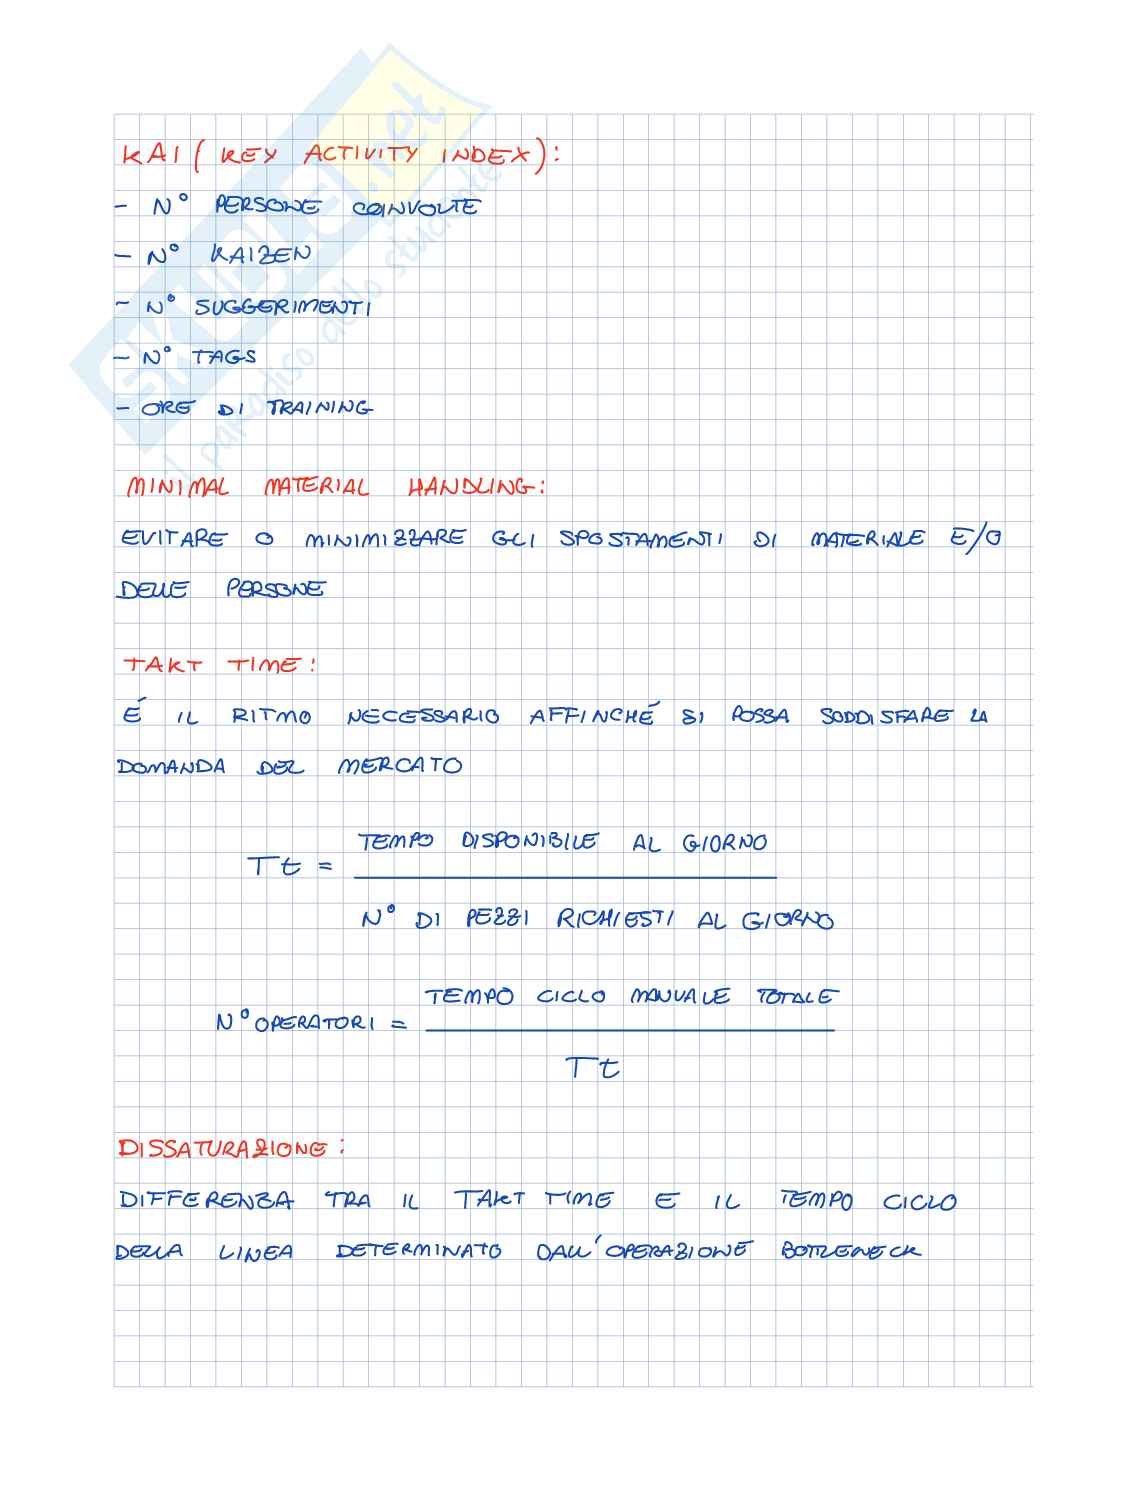 KAI (KEY ACTIVITY INDEX):
- N° PERSONE COINVOLTE
- N° KAIZEN
- N° SUGGERIMENTI
- N° TAGS
- ORE DI TRAINING
MINIMAL MATERIAL HANDLING:
EVITARE O MINIMIZZARE GLI SPOSTAMENTI DI MATERIALE E/O
DELLE PERSONE
TAKT TIME:
É IL RITMO NECESSARIO AFFINCHÉ SI POSSA SODDISFARE LA
DOMANDA DEL MERCATO
TEMPO DISPONIBILE AL GIORNO
Tt =
N° DI PEZZI RICHIESTI AL GIORNO
TEMPO CICLO MANUALE TOTALE
N° OPERATORI =
Tt
DISSATURAZIONE:
DIFFERENZA TRA IL TAKT TIME E IL TEMPO CICLO
DELLA LINEA DETERMINATO DALL'OPERAZIONE BOTTLENECK
SKUOLA.net
il paradiso dello studente